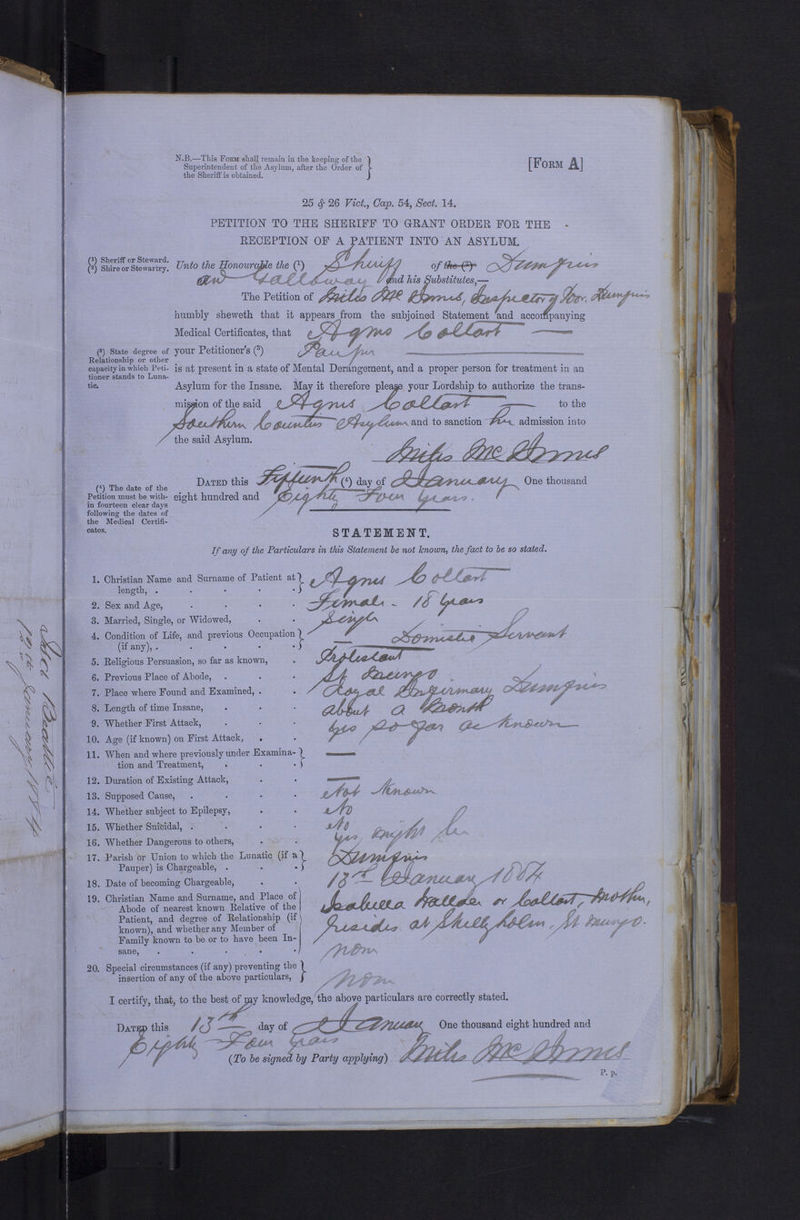 N.B.—This Form shall remain in the keeping of the
Superintendent of the Asylum, after the Order of
the Sheriff is obtained.
[Form A]
25 & 26 Vict., Cap. 54, Sect. 14.
PETITION TO THE SHERIFF TO GRANT ORDER FOR THE
RECEPTION OF A PATIENT INTO AN ASYLUM.
(1) Sheriff or Steward.
(2) Shire or Stewartry.
Unto the Honourable the (1) Sheriff of the (2) Dumfries
and Galloway and his Substitutes,—
The Petition of Miles McInnes, Inspector of Poor, Dumfries
humbly sheweth that it appears from the subjoined Statement and accompanying
Medical Certificates, that Agnes Collart
(3) State degree of
Relationship or other
capacity in which Peti-
tioner stands to Luna-
tic.
your Petitioner's (3) Pauper
is at present in a state of Mental Derangement, and a proper person for treatment in an
Asylum for the Insane. May it therefore please your Lordship to authorize the trans-
mission of the said Agnes Collart to the
Southern Counties Asylum and to sanction her admission into
the said Asylum.
Miles McInnes
(4) The date of the
Petition must be with-
in fourteen clear days
following the dates of
the Medical Certifi-
cates.
Dated this Fifteenth (4) day of January One thousand
eight hundred and Eighty Four years.
STATEMENT.
If any of the Particulars in this Statement be not known, the fact to be so stated.
1. Christian Name and Surname of Patient at length, . Agnes Collart
2. Sex and Age, Female - 18 years
3. Married, Single, or Widowed, Single
4. Condition of Life, and previous Occupation (if any), . — Domestic Servant
5. Religious Persuasion, so far as known, Protestant
6. Previous Place of Abode, St Mungo
7. Place where Found and Examined, Royal Infirmary Dumfries
8. Length of time Insane, about a Month
9. Whether First Attack, Yes so far as known
10. Age (if known) on First Attack,
11. When and where previously under Examination and Treatment, —
12. Duration of Existing Attack, —
13. Supposed Cause, Not Known
14. Whether subject to Epilepsy, No
15. Whether Suicidal, No
16. Whether Dangerous to others, Yes, might be
17. Parish or Union to which the Lunatic (if a Pauper) is Chargeable, Dumfries
18. Date of becoming Chargeable, 13th January 1884
19. Christian Name and Surname, and Place of
Abode of nearest known Relative of the
Patient, and degree of Relationship (if
known), and whether any Member of
Family known to be or to have been In-
sane,
Isabella or Collart, Mother,
resides at holm, St Mungo.
None
20. Special circumstances (if any) preventing the insertion of any of the above particulars, None
I certify, that, to the best of my knowledge, the above particulars are correctly stated.
Dated this 13th day of January One thousand eight hundred and
Eighty Four years
(To be signed by Party applying) Miles McInnes
P. p.
Beattie
12th January 1884